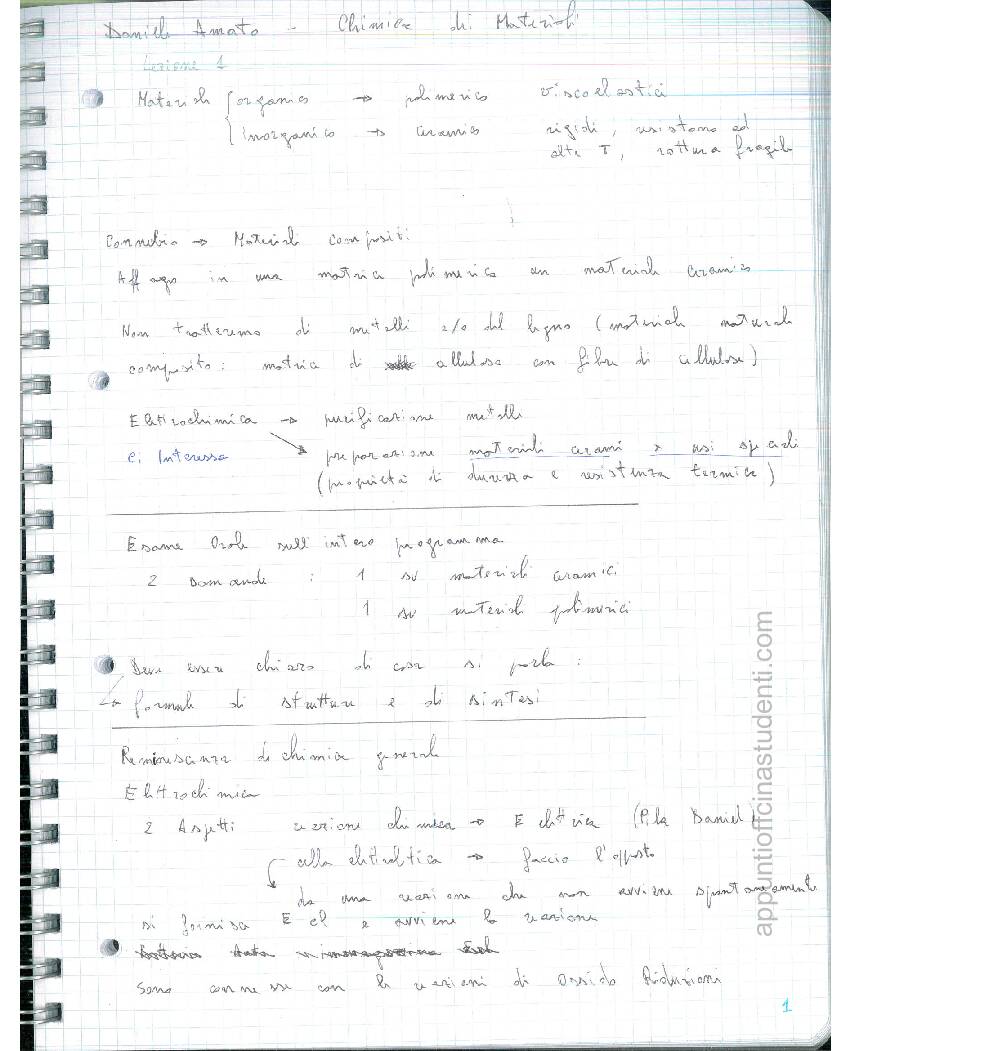 Daniele Amato - Chimica di Materiali
Lezione 1
Materiali { organico → polimerico viscoelastici
inorganico → ceramico rigidi, resistono ad
alte T, rottura fragile
Connubio → Materiali compositi
Affogo in una matrice polimerica un materiale ceramico
Non tratteremo di metalli e/o del legno (materiale naturale
composito: matrice di cellulosa con fibre di cellulosa)
Elettrochimica → purificazione metalli
ci interessa preparazione materiali cerami x usi speciali
(proprietà di durezza e resistenza termica)
Esame Orale sull'intero programma
2 Domande : 1 su materiali ceramici
1 su materiali polimerici
Deve essere chiaro di cosa si parla :
↳ formule di struttura e di sintesi
Reminiscenze di chimica generale
Elettrochimica
2 Aspetti reazione chimica → E elettrica (Pila Daniel)
cella elettrolitica → faccio l'opposto
da una reazione che non avviene spontaneamente
si fornisce E el e avviene la reazione
Sono connesse con le reazioni di Ossido Riduzioni
1
appuntiofficinastudenti.com